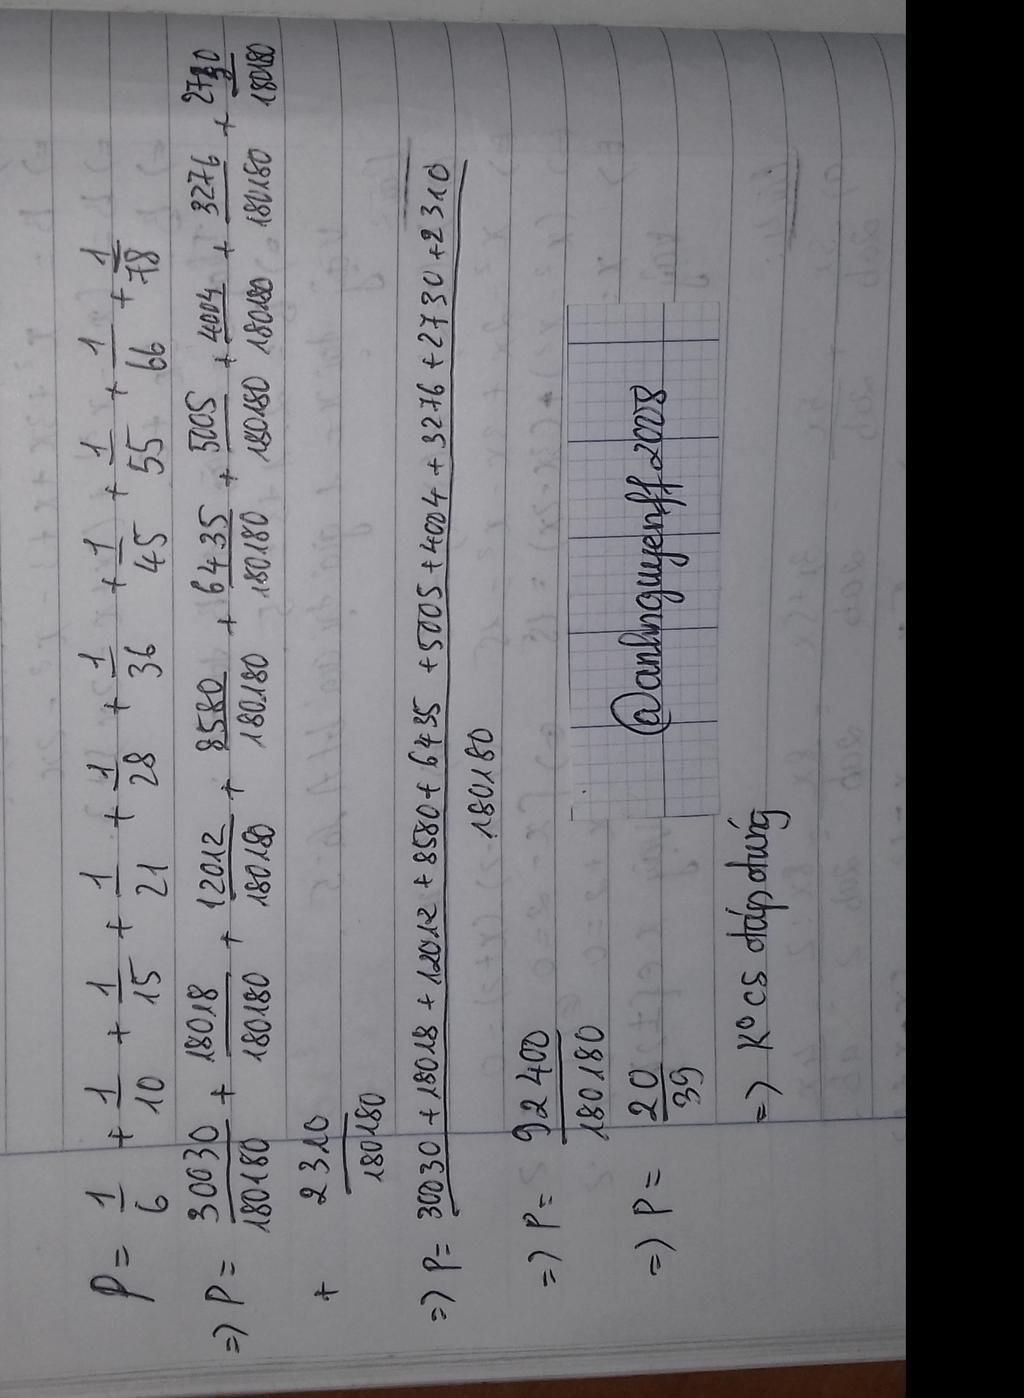 P = 1/6 + 1/10 + 1/15 + 1/21 + 1/28 + 1/36 + 1/45 + 1/55 + 1/66 + 1/78
=) P = 30030/180180 + 18018/180180 + 12012/180180 + 8580/180180 + 6435/180180 + 5005/180180 + 4004/180180 + 3276/180180 + 2730/180180
+ 2310/180180
=) P = 30030 + 18018 + 12012 + 8580 + 6435 + 5005 + 4004 + 3276 + 2730 + 2310/180180
=) P = 92400/180180
=) P = 20/39
@anhnguyenff2008
=) K° cs đáp đúng